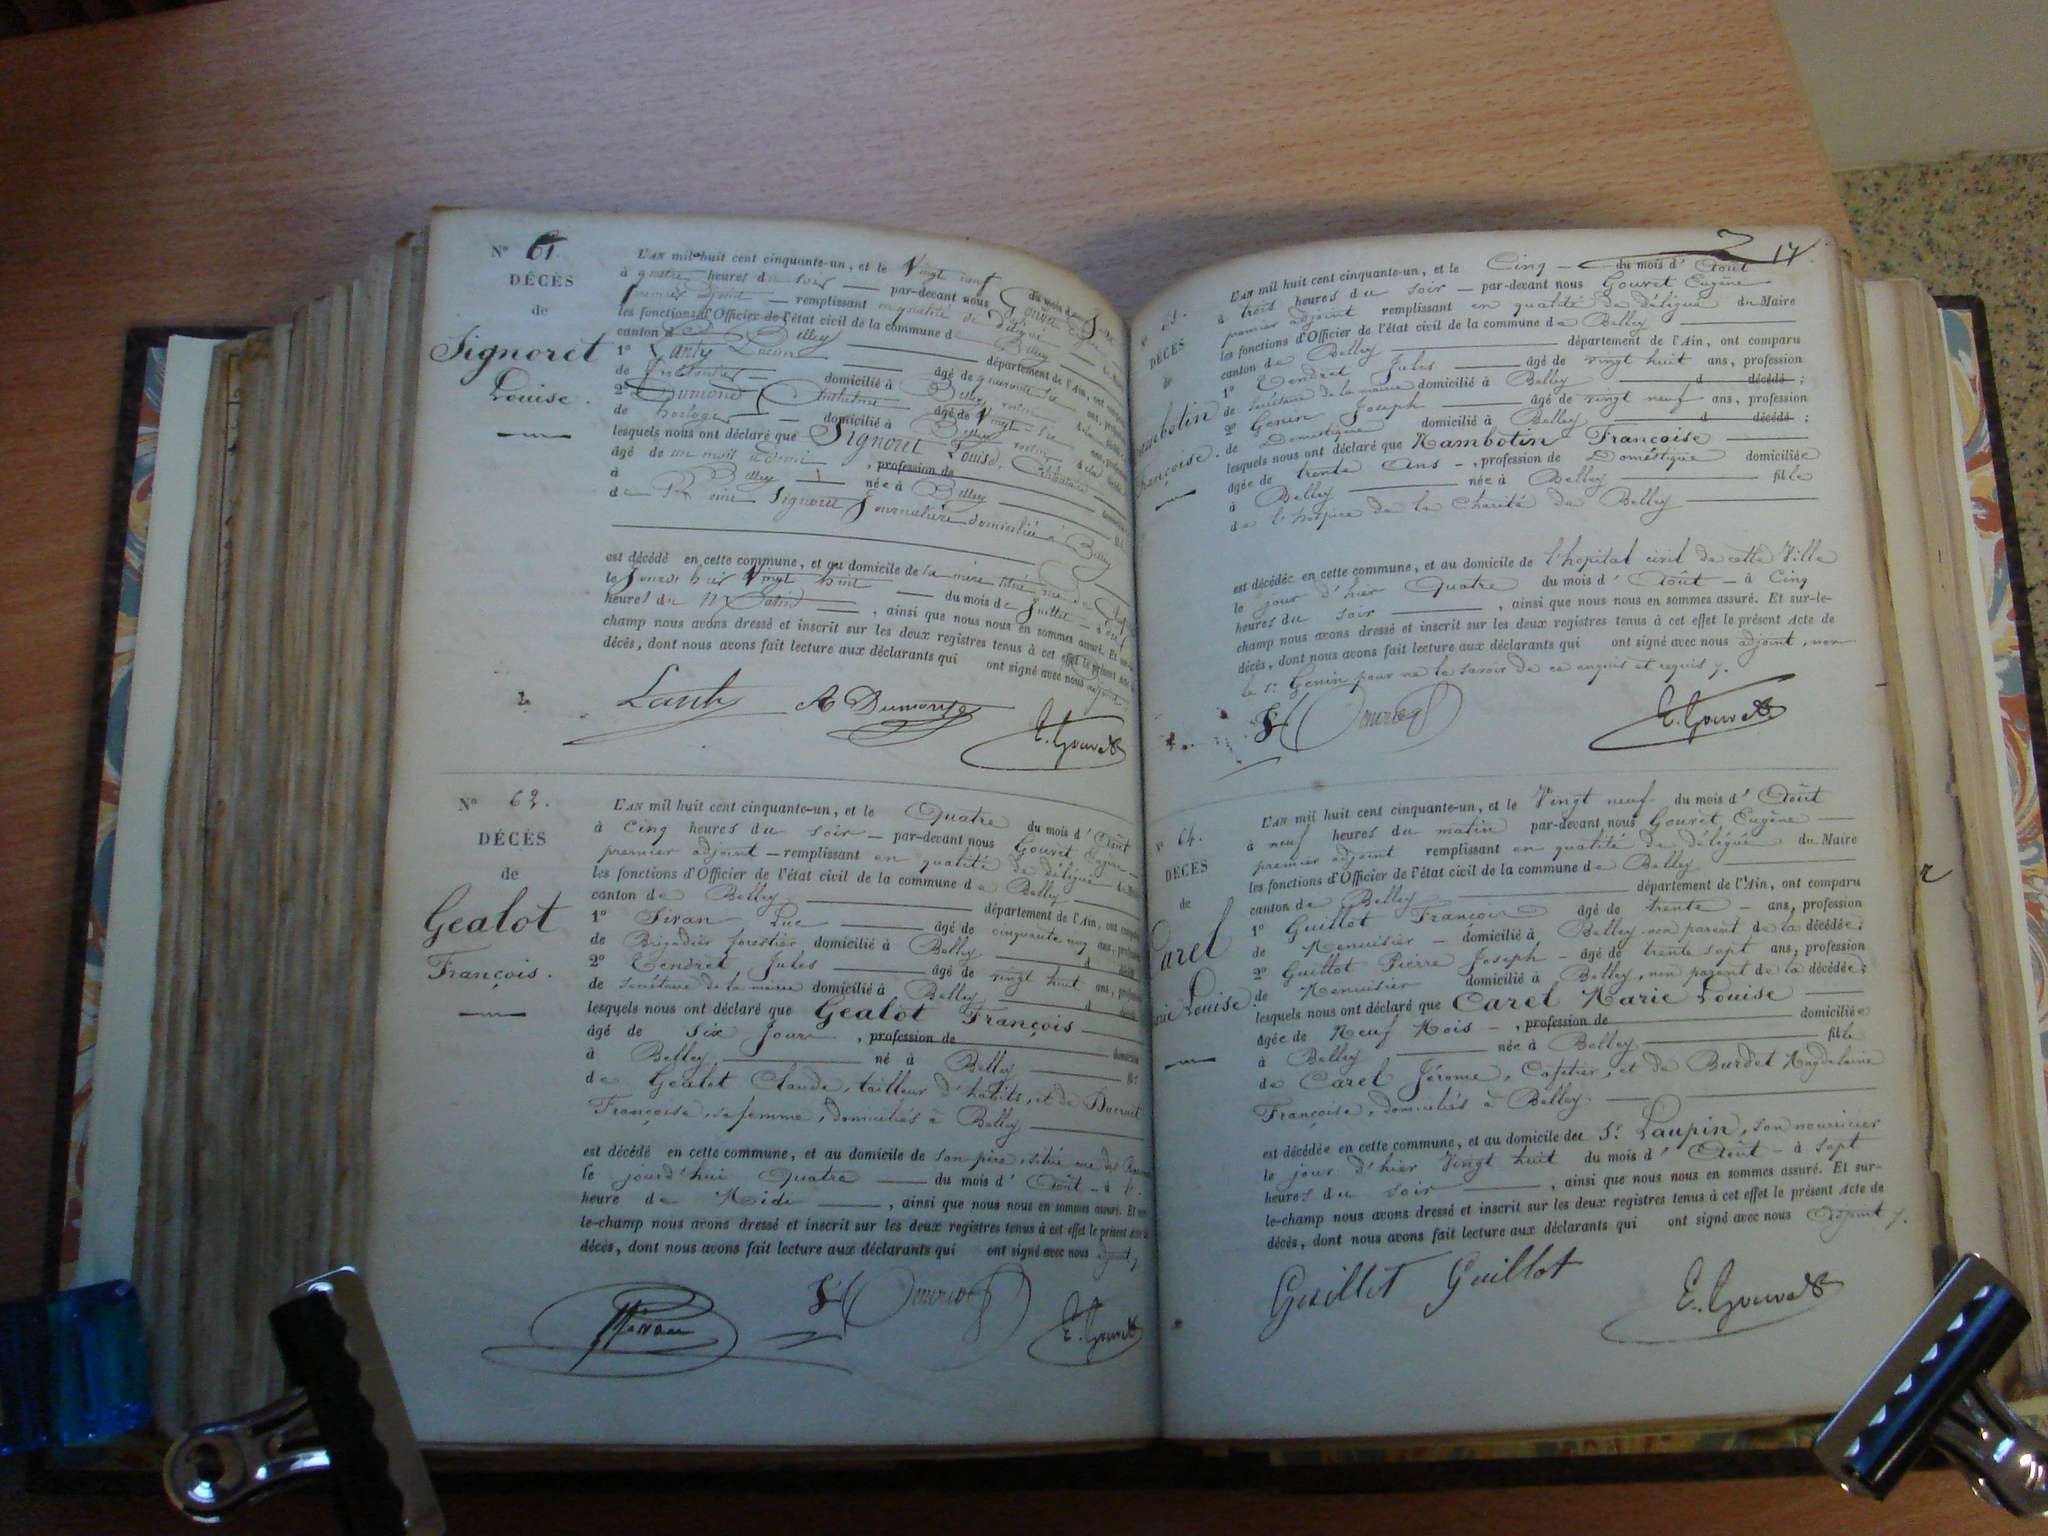 N° 61.
DÉCÈS
de
Signoret
Louise.
L'AN mil huit cent cinquante-un, et le Vingt neuf du mois de
à quatre heures du soir — par-devant nous Gouvet
premier adjoint — remplissant en qualité de délégué
les fonctions d'Officier de l'état civil de la commune de Belley
canton de Belley département de l'Ain, ont comparu
1° Lanty âgé de ans, profession
de domicilié à Belley
2° Dumond Anthelme âgé de Vingt
de horloger domicilié à Belley
lesquels nous ont déclaré que Signoret Louise,
âgé de un mois et demi, profession de
à Belley née à Belley
de Signoret Journalière domiciliée à Belley
est décédé en cette commune, et au domicile de sa mère située rue
le Jourd'hui Vingt huit du mois de Juillet — à
heures du Matin, ainsi que nous nous en sommes assuré. Et sur-le-
champ nous avons dressé et inscrit sur les deux registres tenus à cet effet le présent acte de
décès, dont nous avons fait lecture aux déclarants qui ont signé avec nous adjoint
Lanty A Dumond
E. Gouvet
N° 62.
DÉCÈS
de
Gealot
François.
L'AN mil huit cent cinquante-un, et le Quatre du mois d'Août
à Cinq heures du soir — par-devant nous Gouvet Eugène
premier adjoint — remplissant en qualité de délégué du Maire
les fonctions d'Officier de l'état civil de la commune de Belley
canton de Belley département de l'Ain, ont comparu
1° Sivan Luc âgé de cinquante ans, profession
de Brigadier forestier domicilié à Belley d décédé
2° Tendret Jules âgé de vingt huit ans, profession
de Secrétaire de la mairie domicilié à Belley d décédé
lesquels nous ont déclaré que Gealot François
âgé de Six Jours, profession de domicilié
à Belley né à Belley fils
de Gealot Claude, tailleur d'habits, et de Ducruet
Françoise, sa femme, domiciliés à Belley
est décédé en cette commune, et au domicile de son père, située rue des
le jourd'hui Quatre du mois d'Août — à l'
heure de Midi, ainsi que nous nous en sommes assuré. Et sur-
le-champ nous avons dressé et inscrit sur les deux registres tenus à cet effet le présent acte de
décès, dont nous avons fait lecture aux déclarants qui ont signé avec nous adjoint
E. Gouvet
17
63.
N°
DÉCÈS
de
Rambotin
Françoise.
L'AN mil huit cent cinquante-un, et le Cinq du mois d'Août
à trois heures du soir — par-devant nous Gouvet Eugène
premier adjoint remplissant en qualité de délégué du Maire
les fonctions d'Officier de l'état civil de la commune de Belley
canton de Belley département de l'Ain, ont comparu
1° Tendret Jules âgé de vingt huit ans, profession
de Secrétaire de la mairie domicilié à Belley d décédé;
2° Genin Joseph âgé de vingt neuf ans, profession
de Domestique domicilié à Belley d décédé;
lesquels nous ont déclaré que Rambotin Françoise
âgée de trente Ans —, profession de Doméstique domiciliée
à Belley née à Belley fille
de l'hospice de la Charité de Belley
est décédée en cette commune, et au domicile de l'hopital civil de cette Ville
le jour d'hier Quatre du mois d'Août — à Cinq
heures du soir, ainsi que nous nous en sommes assuré. Et sur-le-
champ nous avons dressé et inscrit sur les deux registres tenus à cet effet le présent Acte de
décès, dont nous avons fait lecture aux déclarants qui ont signé avec nous adjoint, non
le Sr. Genin pour ne le savoir de ce enquis et requis
E. Gouvet
N° 64.
DÉCÈS
de
Carel
Marie Louise.
L'AN mil huit cent cinquante-un, et le Vingt neuf du mois d'Août
à neuf heures du matin par-devant nous Gouvet Eugène —
premier adjoint remplissant en qualité de délégué du Maire
les fonctions d'Officier de l'état civil de la commune de Belley
canton de Belley département de l'Ain, ont comparu
1° Guillot François âgé de trente — ans, profession
de Menuisier — domicilié à Belley non parent de la décédée;
2° Guillot Pierre Joseph — âgé de trente sept ans, profession
de Menuisier domicilié à Belley, non parent de la décédée;
lesquels nous ont déclaré que Carel Marie Louise
âgée de Neuf Mois —, profession de domiciliée
à Belley née à Belley fille
de Carel Jérome, Cafetier, et de Burdet Magdelaine
Françoise, domiciliés à Belley
est décédée en cette commune, et au domicile du Sr. Laupin, son nourricier
le jour d'hier Vingt huit du mois d'Août — à sept
heures du soir, ainsi que nous nous en sommes assuré. Et sur-
le-champ nous avons dressé et inscrit sur les deux registres tenus à cet effet le présent Acte de
décès, dont nous avons fait lecture aux déclarants qui ont signé avec nous Adjoint
Guillot Guillot
E. Gouvet